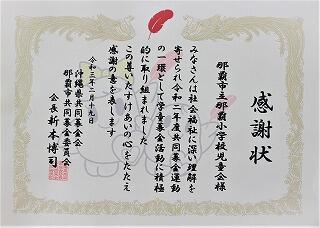 感謝状
那覇市立那覇小学校児童会様
みなさんは社会福祉に深い理解を
寄せられ令和二年度共同募金運動
の一環として学童募金活動に積極
的に取り組まれました
この尊いたすけあいの心をたたえ
感謝の意を表します
令和三年二月十九日
沖縄県共同募金会
那覇市共同募金委員会
会長 新本博司